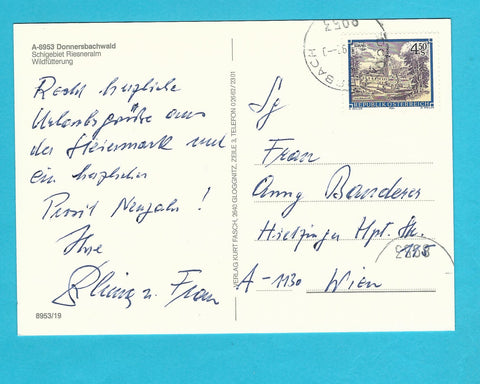 A-8953 Donnersbachwald
Schigebiet Riesneralm
Wildfütterung
Recht herzliche
Urlaubsgrüße aus
der Steiermark und
ein herzliches
Prosit Neujahr!
Ihre
u. Frau
8953/19
VERLAG KURT FASCH, 2640 GLOGGNITZ, ZEILE 3, TELEFON 02662/2301
8953
BACH
4.50
S
REPUBLIK ÖSTERREICH
Frau
Anny Banderer
Hietzinger Hpt. Str.
A-1130 Wien
8953